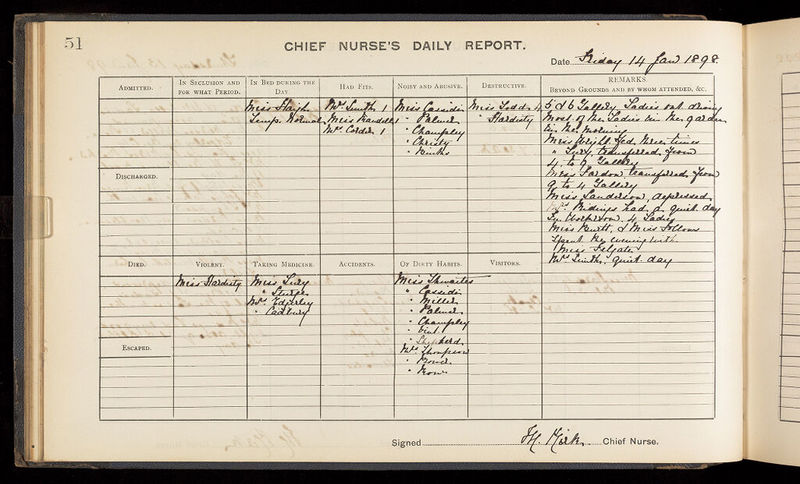 51
CHIEF NURSE'S DAILY REPORT.
Date Friday 14 Jan 1898
ADMITTED.
IN SECLUSION AND FOR WHAT PERIOD.
IN BED DURING THE DAY.
Miss Haigh
Temp. Normal
HAD FITS.
Mrs Smith 1
Miss 1
Mrs Corder 1
NOISY AND ABUSIVE.
Miss Cassidi
" Palmer
" Champley
" Christy
DESTRUCTIVE.
Miss Todd 4
" Hardisty
REMARKS.
BEYOND GROUNDS AND BY WHOM ATTENDED, &c.
5 & 6 Gallery Ladies out driving
Most of the Ladies in the garden
in the morning
Miss fed three times
" Lury transferred from
4 to 9 Gallery
Miss Pardon transferred from
9 to 4 Gallery
Miss Sanderson, depressed
Mrs Ridings had a quiet day
4 Ladies
Miss & Miss
spent the evening with
Miss
Mrs Smith. quiet day
DISCHARGED.
DIED.
VIOLENT.
Miss Hardisty
TAKING MEDICINE.
Miss Lury
" Sturge
Mrs Edgerley
" Cadbury
ACCIDENTS.
OF DIRTY HABITS.
Miss Thwaites
" Cassidi
" Miller
" Palmer
" Champley
" Vint
" Shepherd
Mrs Thompson
VISITORS.
ESCAPED.
Signed H. Kirk Chief Nurse.